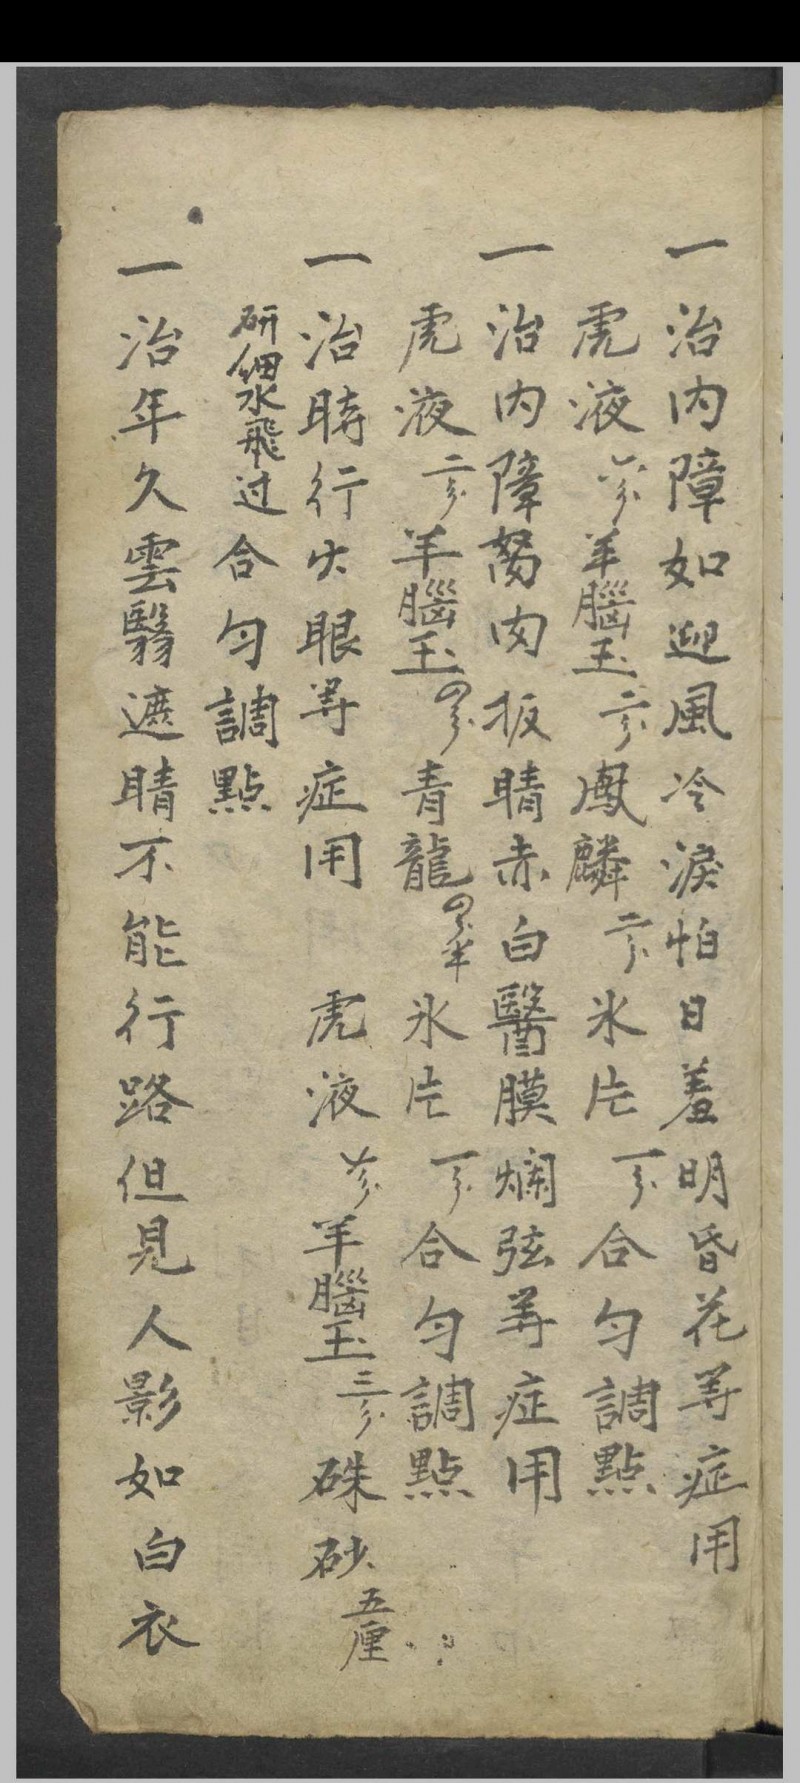 一治内障如迎風冷淚怕日羞明昏花等症用
虎液六分羊腦玉二分鳳麟二分氷片一分合匀調點
一治内障胬肉扳睛赤白醫膜爛弦等症用
虎液二分羊腦玉四分青龍四分半氷片一分合匀調點
一治時行火眼等症用　虎液分羊腦玉三分硃砂五厘
研細水飛过合匀調點
一治年久雲翳遮睛不能行路但見人影如白衣